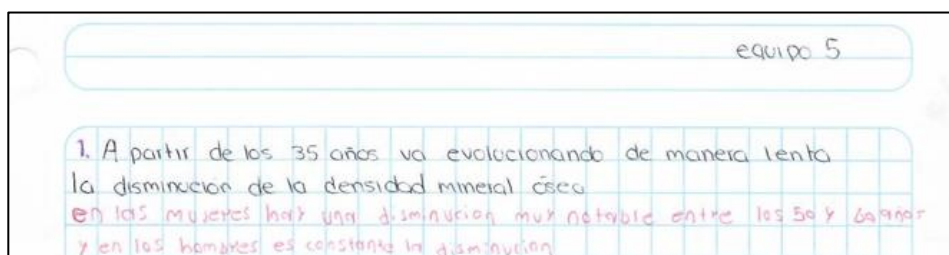 equipo 5
1. A partir de los 35 años va evolucionando de manera lenta
la disminución de la densidad mineral ósea
en las mujeres hay una disminución muy notable entre los 50 y 60 años
y en los hombres es constante la disminución